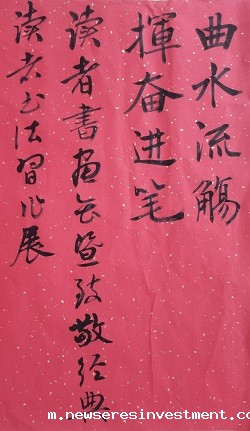 曲水流觴
揮奋进笔
读者書画会暨致敬经典
读者书法習作展
m.newseresinvestment.com